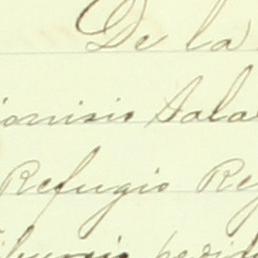 De la
ionisio Sala
Refugio Re